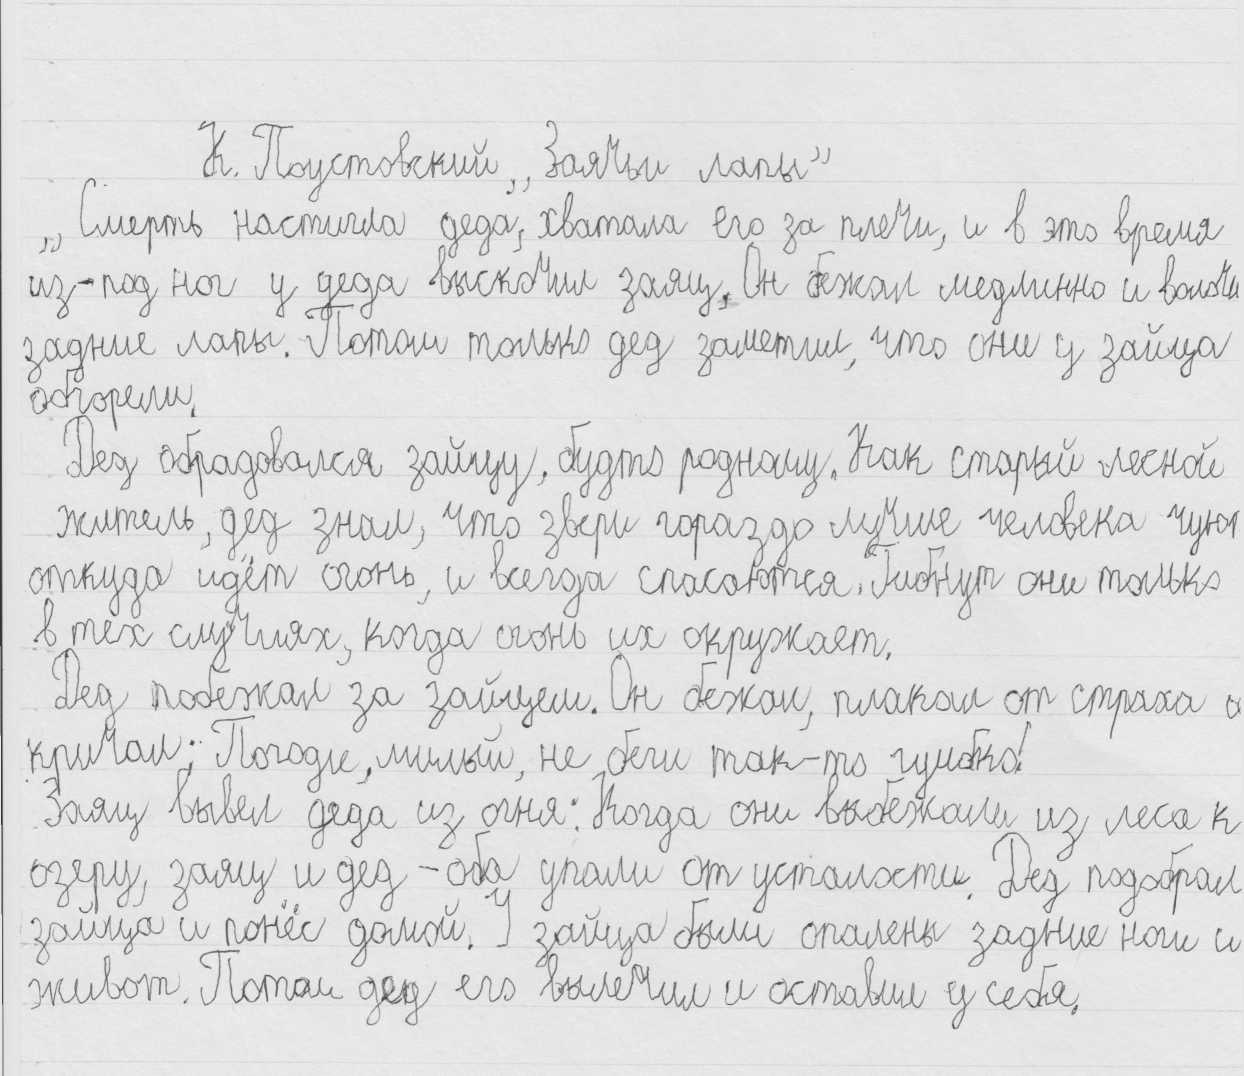 К. Поустовский „Заячьи лапы”
„Смерть настигла деда, хватала его за плечи, и в это время
из-под ног у деда выскочил заяц. Он бежал медлинно и волочи
задние лапы. Потом только дед заметил, что они у зайца
обгорели.
Дед обрадовался зайцу, будто родному. Как старый лесной
житель, дед знал, что звери гораздо лучше человека чуют
откуда идёт огонь, и всегда спасаются. Гибнут они только
в тех случиях, когда огонь их окружает.
Дед побежал за зайцем. Он бежал, плакал от страха и
кричал: Погоди, милый, не беги так-то гшибко!
Заяц вывел деда из огня. Когда они выбежали из леса к
озеру, заяц и дед - оба упали от усталости. Дед подобрал
зайца и понёс домой. У зайца были опалены задние ноги и
живот. Потом дед его вылечил и оставил у себя.